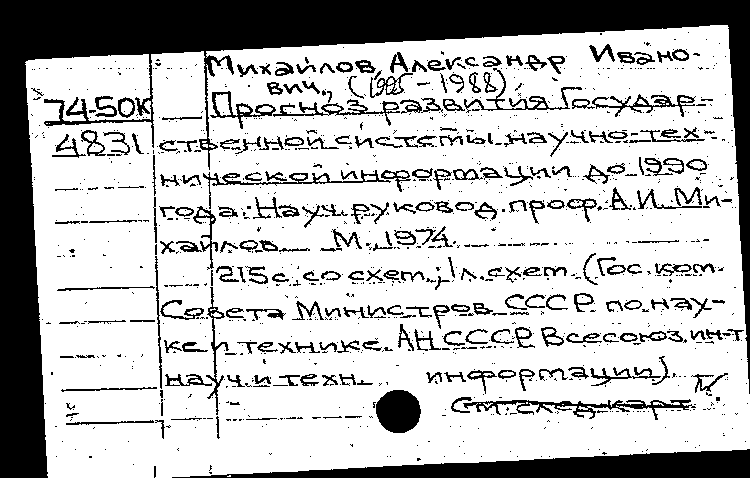 Михайлов, Александр Ивано-
вич., (1905 - 1988)
74-50К
4831
Прогноз развития Государ-
ственной системы научно-тех-
нической информации до 1990
года. Науч. руковод. проф. А.И. Ми-
хайлов. М., 1974.
215с. со схем.; 1 л. схем. (Гос. ком.
Совета Министров СССР по нау-
ке и технике. АН СССР. Всесоюз. ин-т
науч. и техн. информации).
См. след. карт.